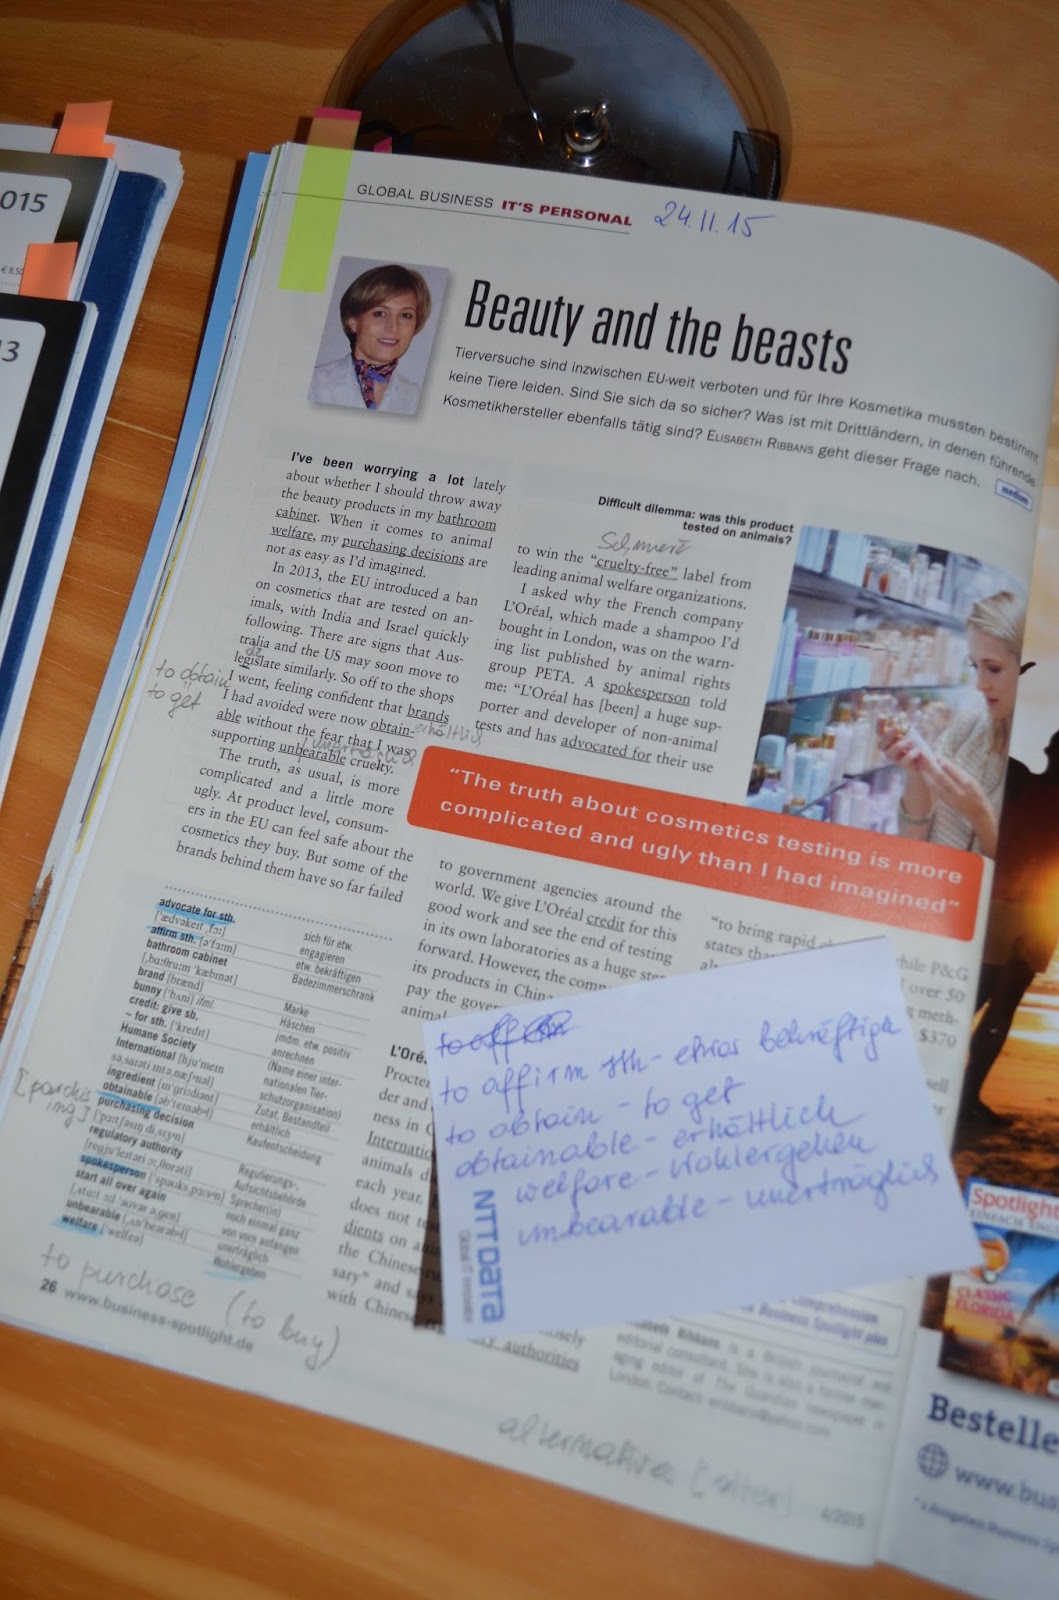 015
€ 8.50
13
GLOBAL BUSINESS IT'S PERSONAL
24.11.15
Beauty and the beasts
Tierversuche sind inzwischen EU-weit verboten und für Ihre Kosmetika mussten bestimmt
keine Tiere leiden. Sind Sie sich da so sicher? Was ist mit Drittländern, in denen führende
Kosmetikhersteller ebenfalls tätig sind? ELISABETH RIBBANS geht dieser Frage nach.
medium
I've been worrying a lot lately
about whether I should throw away
the beauty products in my bathroom
cabinet. When it comes to animal
welfare, my purchasing decisions are
not as easy as I'd imagined.
In 2013, the EU introduced a ban
on cosmetics that are tested on an-
imals, with India and Israel quickly
following. There are signs that Aus-
tralia and the US may soon move to
legislate similarly. So off to the shops
I went, feeling confident that brands
I had avoided were now obtain-
able without the fear that I was
supporting unbearable cruelty.
The truth, as usual, is more
complicated and a little more
ugly. At product level, consum-
ers in the EU can feel safe about the
cosmetics they buy. But some of the
brands behind them have so far failed
dz
to obtain
to get
erhältlich
Difficult dilemma: was this product
tested on animals?
Schmerz
to win the "cruelty-free" label from
leading animal welfare organizations.
I asked why the French company
L'Oréal, which made a shampoo I'd
bought in London, was on the warn-
ing list published by animal rights
group PETA. A spokesperson told
me: "L'Oréal has [been] a huge sup-
porter and developer of non-animal
tests and has advocated for their use
"The truth about cosmetics testing is more
complicated and ugly than I had imagined"
to government agencies around the
world. We give L'Oréal credit for this
good work and see the end of testing
in its own laboratories as a huge step
forward. However, the comp
its products in China
pay the gover
animal
L'Oré
Procter
der and
ness in C
Internatio
animals d
each year.
does not test
dients on ani
the Chinese
sary" and says
with Chinese
authorities
"to bring rapid
states tha
while P&G
over 50
meth-
$370
advocate for sth.
[ˈædvəkeɪt ˌfɔː]
sich für etw.
engagieren
affirm sth. [əˈfɜːm]
etw. bekräftigen
bathroom cabinet
[ˌbɑːθruːm ˈkæbɪnət]
Badezimmerschrank
brand [brænd]
Marke
bunny [ˈbʌni] ifml.
Häschen
credit: give sb.
~ for sth. [ˈkredɪt]
jmdm. etw. positiv
anrechnen
Humane Society
International [hjuˈmeɪn
səˌsaɪəti ɪntəˌnæʃnəl]
(Name einer inter-
nationalen Tier-
schutzorganisation)
ingredient [ɪnˈɡriːdiənt]
Zutat, Bestandteil
obtainable [əbˈteɪnəbəl]
erhältlich
purchasing decision
[ˈpɜːtʃəsɪŋ diˌsɪʒən]
Kaufentscheidung
regulatory authority
[reɡjuˈleɪtəri ɔːˌθɒrəti]
Regulierungs-,
Aufsichtsbehörde
spokesperson [ˈspəʊksˌpɜːsən]
Sprecher(in)
start all over again
[ˌstɑːt ɔːl ˈəʊvər əˌɡen]
noch einmal ganz
von vorn anfangen
unbearable [ʌnˈbeərəbəl]
unerträglich
welfare [ˈwelfeə]
Wohlergehen
to purchase (to buy)
26 www.business-spotlight.de
to affirm sth - etwas bekräftigen
to obtain - to get
obtainable - erhältlich
welfare - Wohlergehen
unbearable - unerträglich
NTT DATA
Global IT Innovator
Business Spotlight plus
Ribbans is a British journalist and
editorial consultant. She is also a former man-
aging editor of The Guardian newspaper in
London. Contact:
alternatives
4/2015
Spotlight
EINFACH ENG
CLASSIC
FLORIDA
Bestelle
www.bus